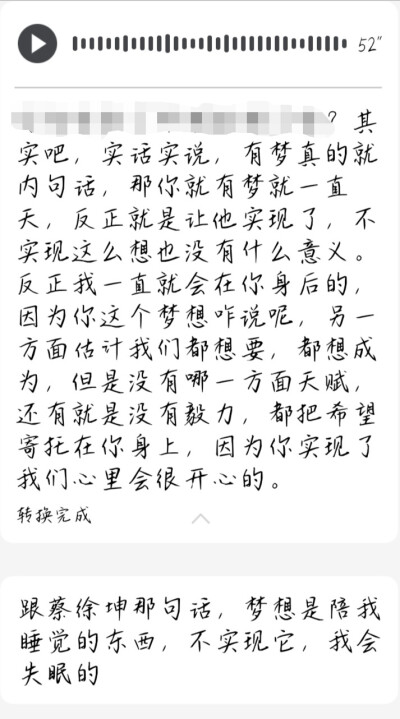 52"
? 其
实吧，实话实说，有梦真的就
内句话，那你就有梦就一直
天，反正就是让他实现了，不
实现这么想也没有什么意义。
反正我一直就会在你身后的，
因为你这个梦想咋说呢，另一
方面估计我们都想要，都想成
为，但是没有哪一方面天赋，
还有就是没有毅力，都把希望
寄托在你身上，因为你实现了
我们心里会很开心的。
转换完成
跟蔡徐坤那句话，梦想是陪我
睡觉的东西，不实现它，我会
失眠的